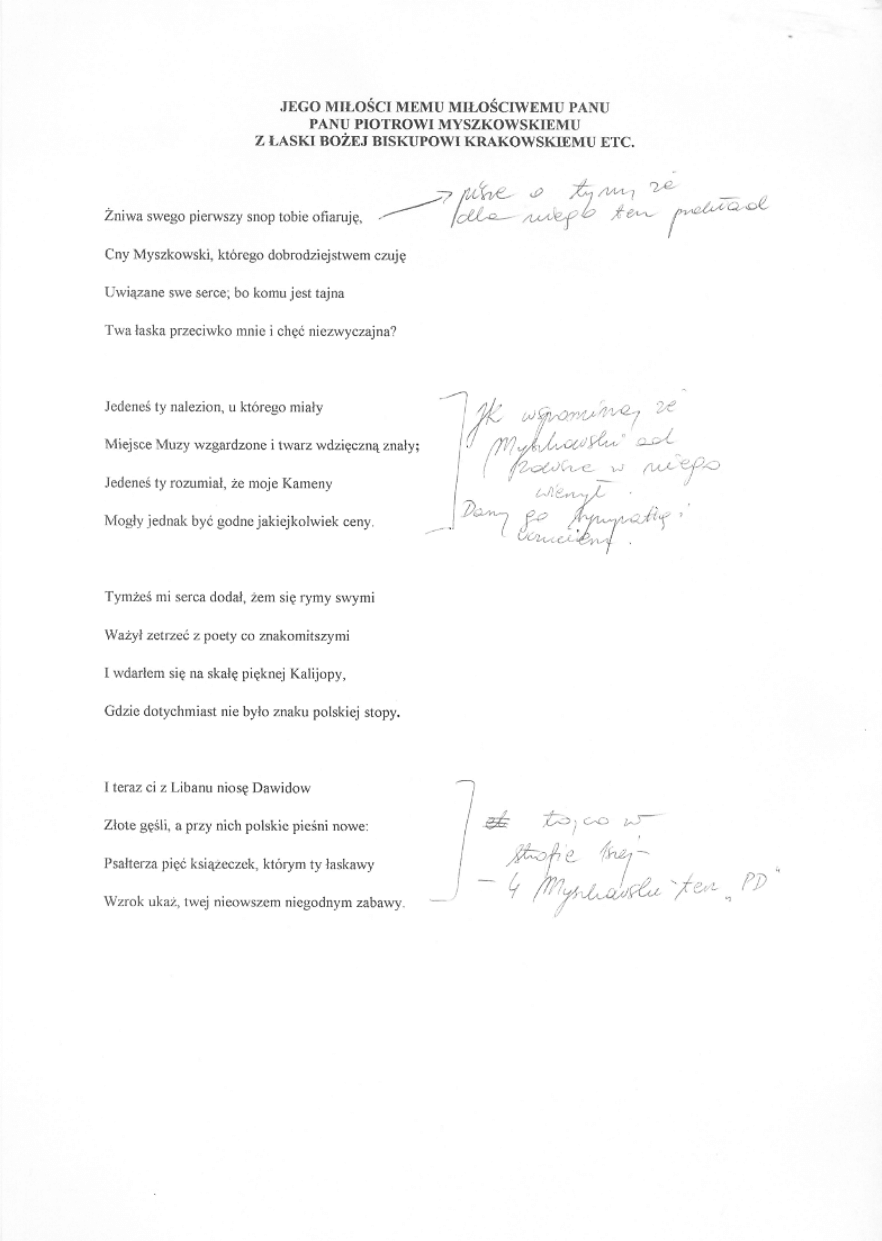 JEGO MIŁOŚCI MEMU MIŁOŚCIWEMU PANU
PANU PIOTROWI MYSZKOWSKIEMU
Z ŁASKI BOŻEJ BISKUPOWI KRAKOWSKIEMU ETC.
pisze o tym, że
dla niego ten przekład
Żniwa swego pierwszy snop tobie ofiaruję,
Cny Myszkowski, którego dobrodziejstwem czuję
Uwiązane swe serce; bo komu jest tajna
Twa łaska przeciwko mnie i chęć niezwyczajna?
Jedeneś ty nalezion, u którego miały
Miejsce Muzy wzgardzone i twarz wdzięczną znały;
Jedeneś ty rozumiał, że moje Kameny
Mogły jednak być godne jakiejkolwiek ceny.
JK wspomina, że
Myszkowski od
zawsze w niego
wierzył.
go sympatię i
Tymżeś mi serca dodał, żem się rymy swymi
Ważył zetrzeć z poety co znakomitszymi
I wdarłem się na skałę pięknej Kalijopy,
Gdzie dotychmiast nie było znaku polskiej stopy.
I teraz ci z Libanu niosę Dawidow
Złote gęśli, a przy nich polskie pieśni nowe:
Psałterza pięć książeczek, którym ty łaskawy
Wzrok ukaż, twej nieowszem niegodnym zabawy.
to, co w
strofie 1 •••ej -
- 4 Myszkowski ten „PD"